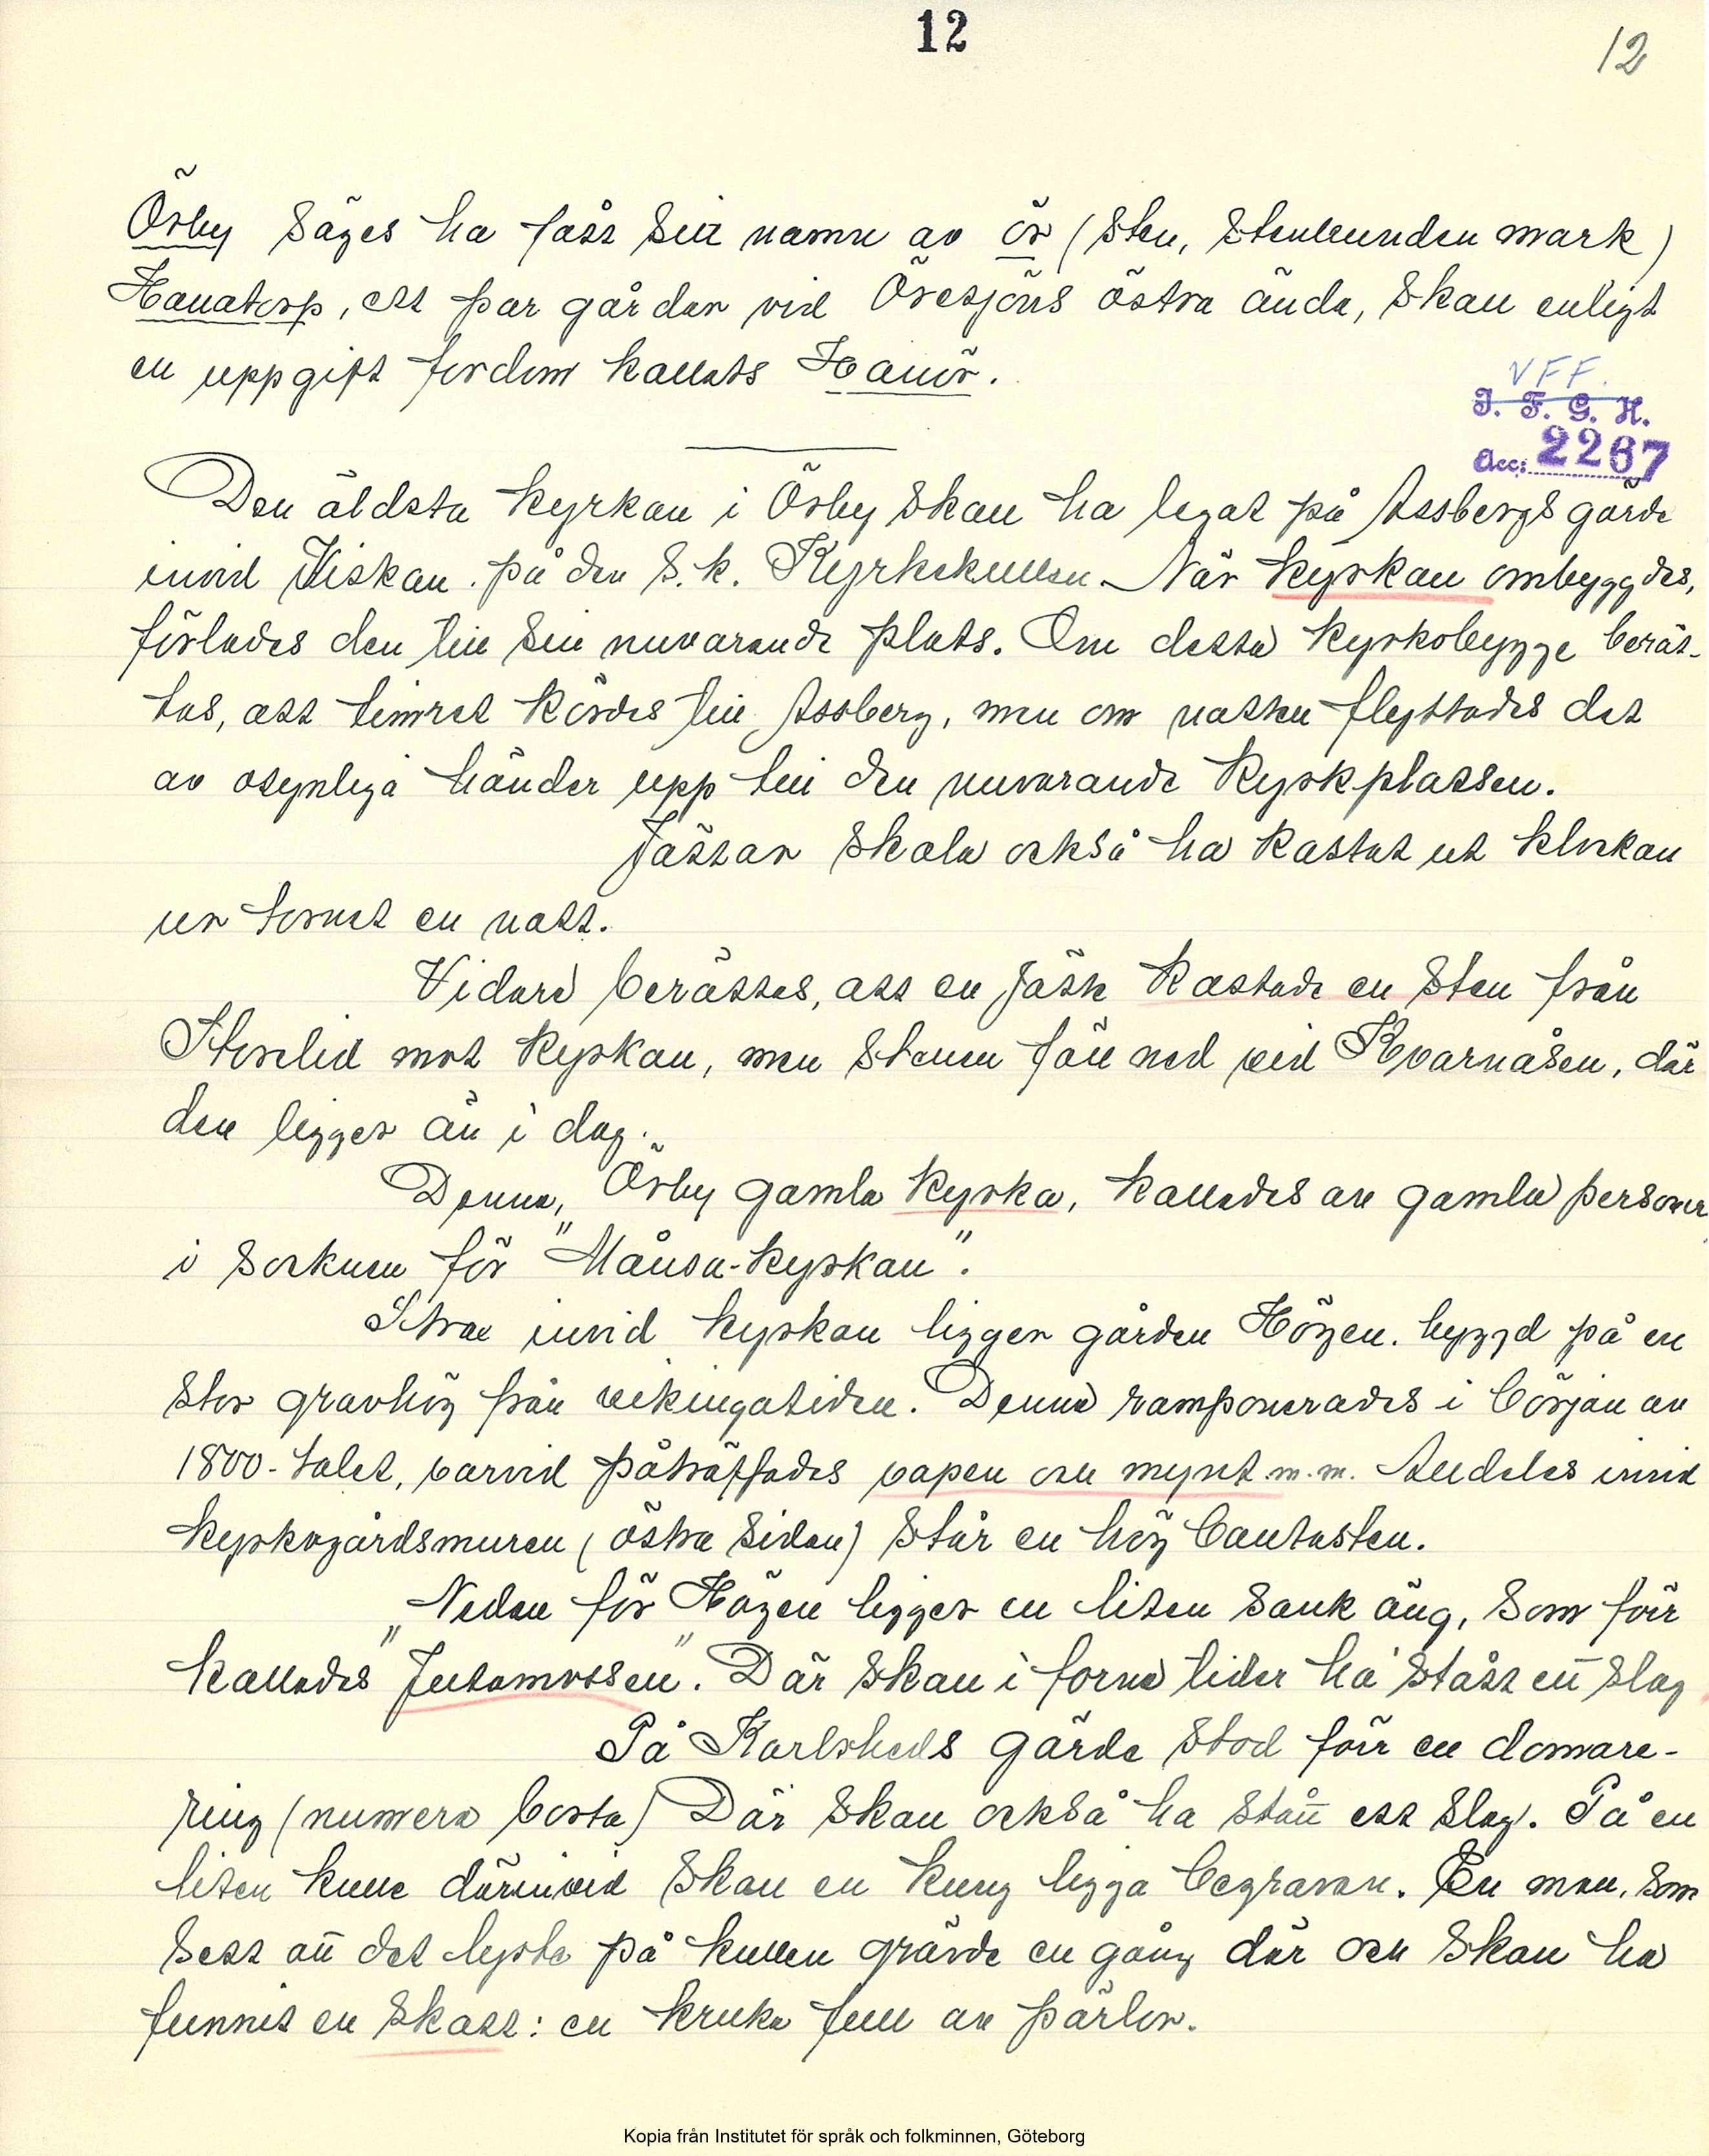 12
12
Örby säges ha fått sitt namn av ör (sten, stenbunden mark)
Hanatorp, ett par gårdar vid Öresjöns östra ända, skall enligt
en uppgift fordom kallats Hanör.
VFF.
I. F. G. H.
Acc: 2267
Den äldsta kyrkan i Örby skall ha legat på Assbergs gärde
invid Viskan på den s.k. Kyrkekullen. När kyrkan ombyggdes,
förlades den till sin nuvarande plats. Om detta kyrkobygge berät-
tas, att timret kördes till Assberg, men om natten flyttades det
av osynliga händer upp till den nuvarande kyrkplatsen.
Jättar skola också ha kastat ut klockan
ur tornet en natt.
Vidare berättas, att en jätte kastade en sten från
Storelid mot kyrkan, men stenen föll ned vid Kvarnåsen, där
den ligger än i dag.
Denna, Örby gamla kyrka, kallades av gamla personer
i socknen för "Månsa-kyrkan".
Strax invid kyrkan ligger gården Högen. byggd på en
stor gravhög från vikingatiden. Denna ramponerades i början av
1800-talet, varvid påträffades vapen och mynt m.m. Alldeles invid
kyrkogårdsmuren (östra sidan) står en hög bautasten.
Nedan för Högen ligger en liten sank äng, som förr
kallades "Jutamossen". Där skall i forna tider ha stått ett slag
På Karlsheds gärde stod förr en domare-
ring (numera borta) Där skall också ha stått ett slag. På en
liten kulle därinvid skall en kung ligga begraven. En man, som
sett att det lyste på kullen grävde en gång där och skall ha
funnit en skatt: en kruka full av pärlor.
Kopia från Institutet för språk och folkminnen, Göteborg